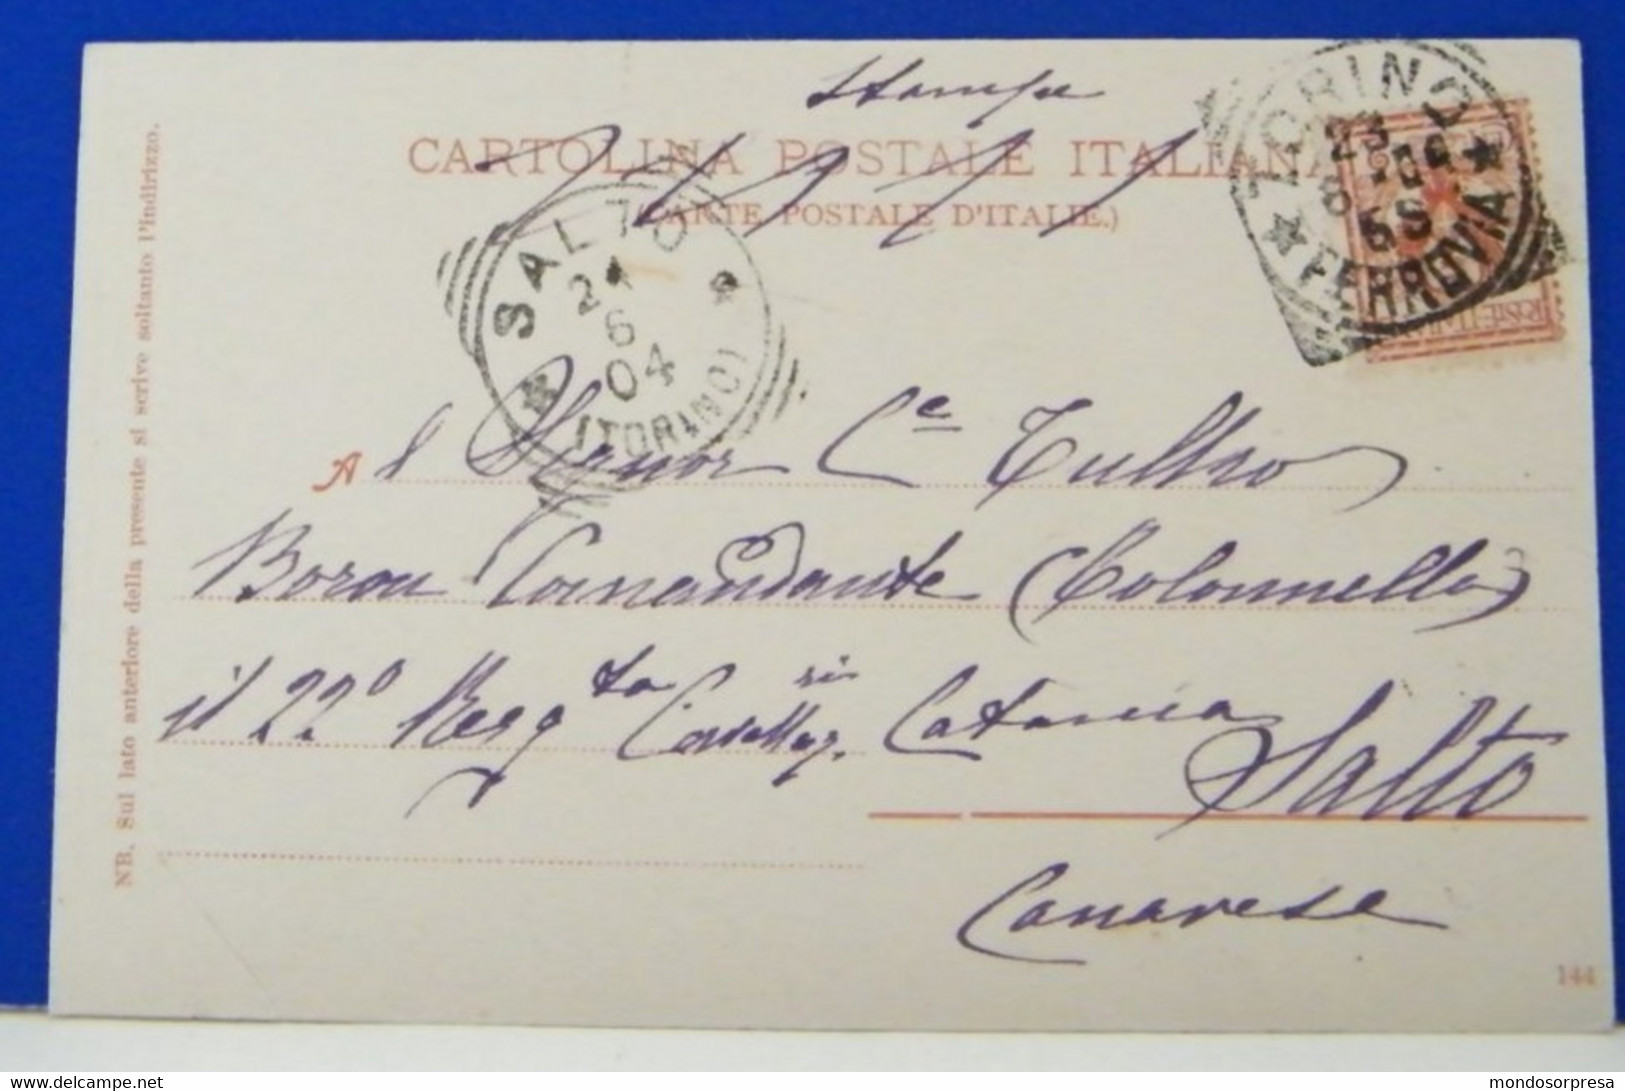 Stampa
CARTOLINA POSTALE ITALIANA
(CARTE POSTALE D'ITALIE.)
TORINO
23
FERROVIA
SALTO
24
6
04
(TORINO)
Al Signor Ce Tullio
Boron Comandante (Colonnello)
il 22º Regg to Cavallegri Catania
Salto
Canavese
NB. Sul lato anteriore della presente si scrive soltanto l'indirizzo.
144
delcampe.net
mondosorpresa